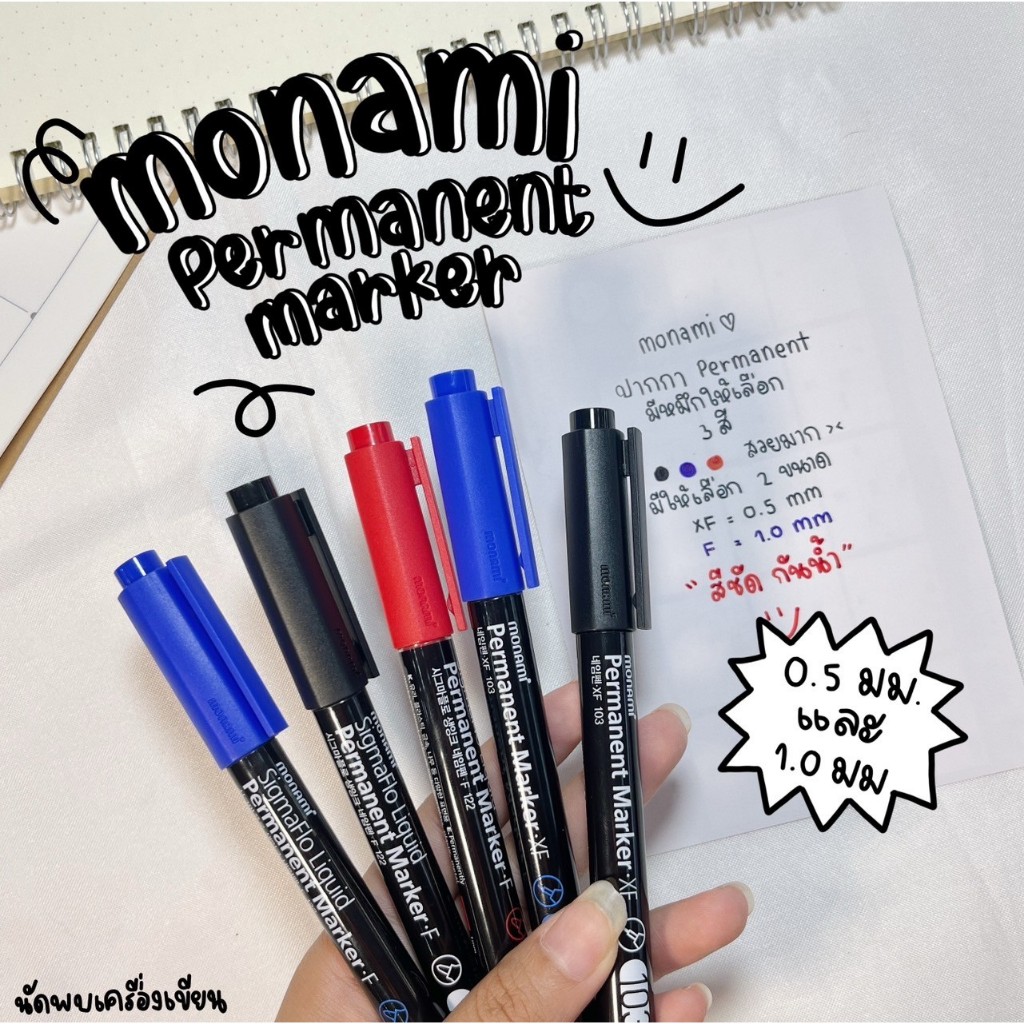 monami
permanent
marker
monami♡
ปากกา Permanent
มีหมึกให้เลือก
3 สี
สวยมาก ><
มีให้เลือก 2 ขนาด
XF = 0.5 mm
F = 1.0 mm
"สีชัด กันน้ำ"
0.5 มม.
และ
1.0 มม
monami
monami
SigmaFlo Liquid
Permanent Marker·F
monami
monami
SigmaFlo Liquid
Permanent Marker·F
시그마플로 생잉크 네임펜·F 122
monami
Permanent Marker·F
시그마플로 생잉크 네임펜·F 122
monami
monami
네임펜·XF 103
Permanent Marker·XF
monami
monami
네임펜·XF 103
Permanent Marker·XF
นัดพบเครื่องเขียน